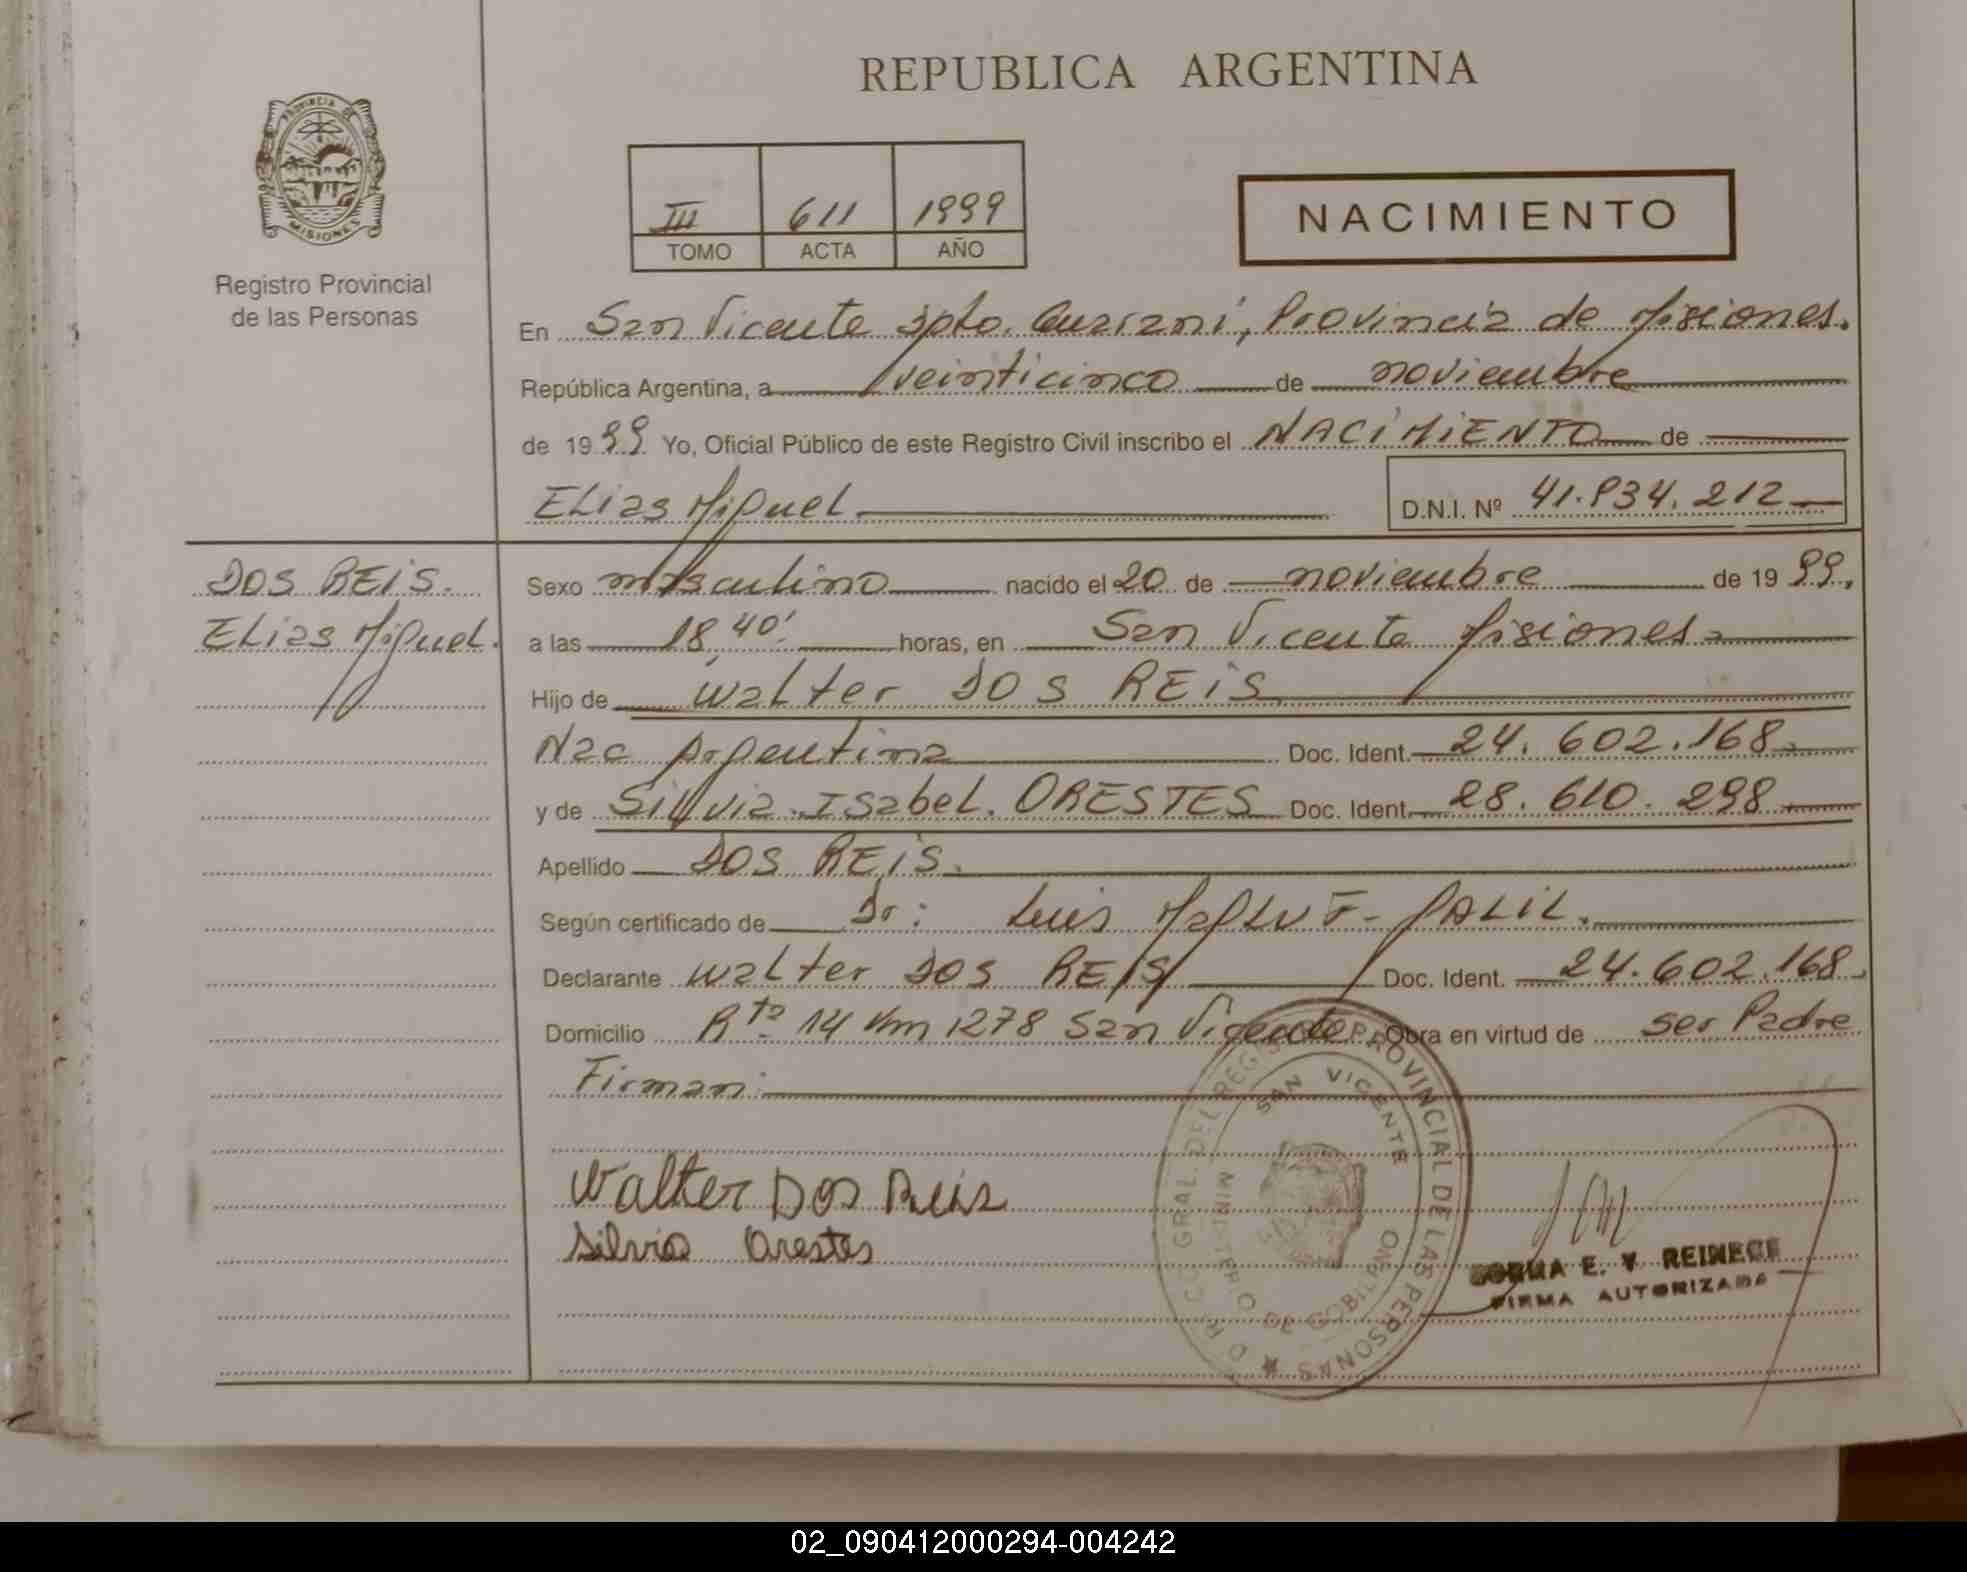 REPUBLICA ARGENTINA
PROVINCIA DE
MISIONES
Registro Provincial
de las Personas
III 611 1999
TOMO ACTA AÑO
NACIMIENTO
En San Vicente Dpto. Guaraní, Provincia de Misiones.
República Argentina, a veinticinco de noviembre
de 1999 Yo, Oficial Público de este Registro Civil inscribo el NACIMIENTO de
ELias Miguel D.N.I. Nº 41.934.212
DOS REIS.
ELias Miguel.
Sexo masculino nacido el 20 de noviembre de 1999,
a las 18,40' horas, en San Vicente Misiones
Hijo de Walter DOS REIS
Nac Argentina Doc. Ident. 24.602.168
y de Silvia Isabel. ORESTES Doc. Ident. 28.610.298
Apellido DOS REIS.
Según certificado de Dr: Luis
Declarante Walter DOS REIS Doc. Ident. 24.602.168
Domicilio Rta 14 Km 1278 San Vicente Obra en virtud de ser Padre
Firman:
Walter Dos Reis
Silvia Orestes
SAN VICENTE
GRAL. DEL REGISTRO PROVINCIAL DE LAS PERSONAS
MINISTERIO DE GOBIERNO
E. V. REINECE
FIRMA AUTORIZADA
02_090412000294-004242